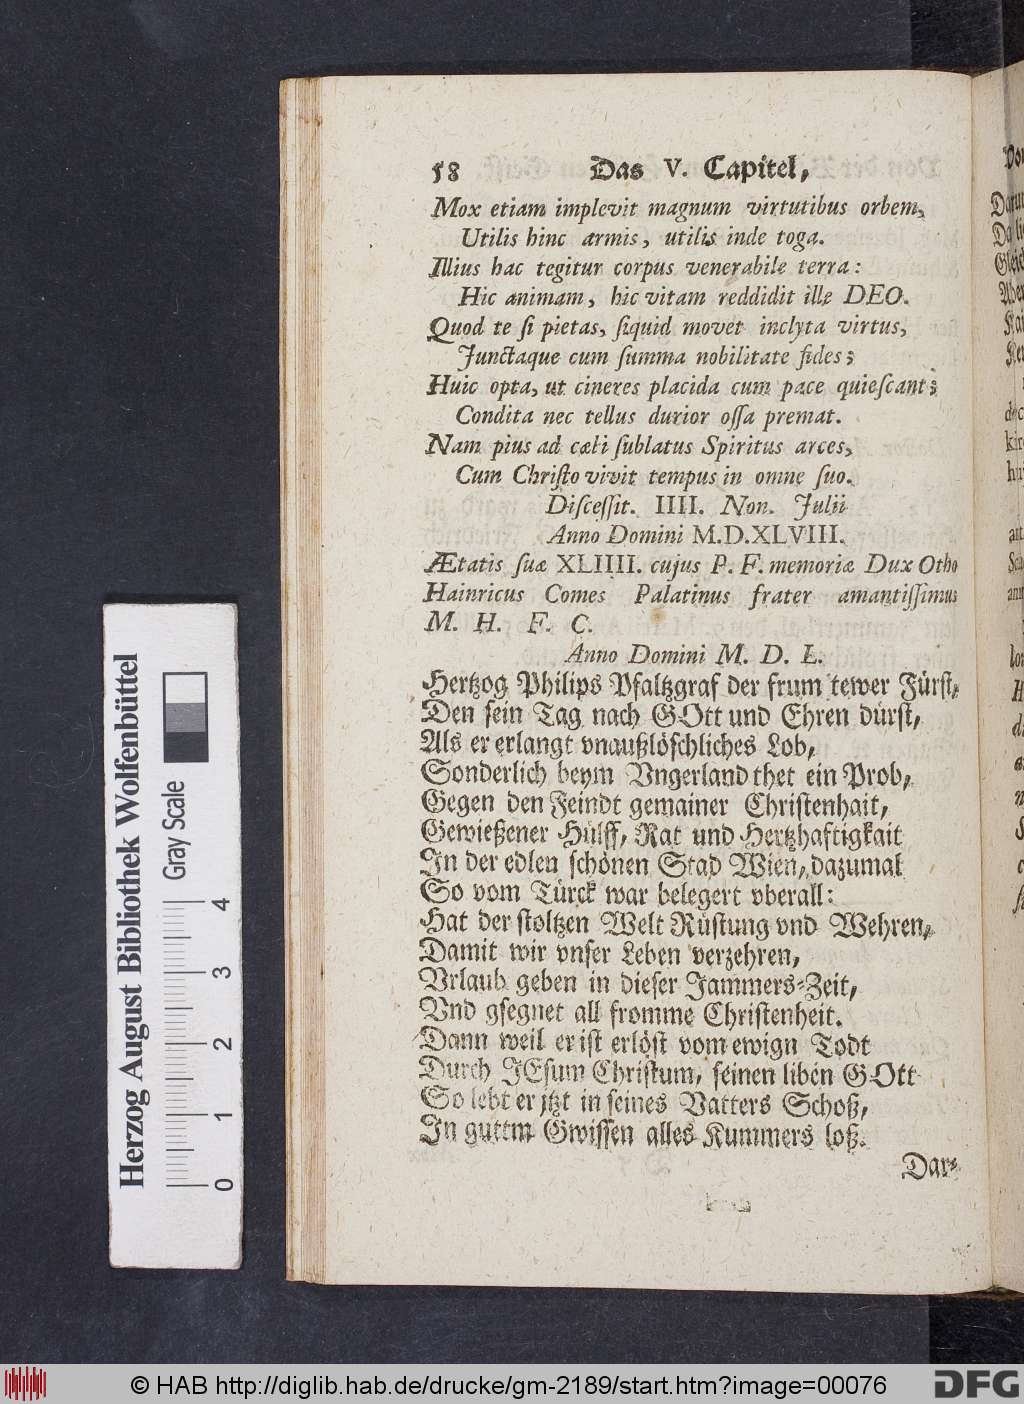 58 Das V. Capitel,
Mox etiam implevit magnum virtutibus orbem,
Utilis hinc armis, utilis inde toga.
Illius hac tegitur corpus venerabile terra:
Hic animam, hic vitam reddidit ille DEO.
Quod te ſi pietas, ſiquid movet inclyta virtus,
Junctaque cum ſumma nobilitate fides;
Huic opta, ut cineres placida cum pace quieſcant;
Condita nec tellus durior oſſa premat.
Nam pius ad cæli ſublatus Spiritus arces,
Cum Chriſto vivit tempus in omne ſuo.
Diſceſſit. IIII. Non. Julii
Anno Domini M.D.XLVIII.
Ætatis ſuæ XLIIII. cujus P. F. memoriæ Dux Otho
Hainricus Comes Palatinus frater amantiſſimus
M. H. F. C.
Anno Domini M. D. L.
Hertzog Philips Pfaltzgraf der frum tewer Fürſt,
Den ſein Tag nach GOtt und Ehren dürſt,
Als er erlangt vnaußlöſchliches Lob,
Sonderlich beym Vngerland thet ein Prob,
Gegen den Feindt gemainer Chriſtenhait,
Gewießener Hülff, Rat und Hertzhaftigkait
In der edlen ſchönen Stad Wien, dazumal
So vom Türck war belegert vberall:
Hat der ſtoltzen Welt Rüſtung vnd Wehren,
Damit wir vnſer Leben verzehren,
Vrlaub geben in dieſer Jammers-Zeit,
Vnd gſegnet all fromme Chriſtenheit.
Dann weil er iſt erlöſt vom ewign Todt
Durch JEſum Chriſtum, ſeinen liben GOtt
So lebt er jtzt in ſeines Vatters Schoß,
In guttm Gwiſſen alles Kummers loß.
Dar-
Herzog August Bibliothek Wolfenbüttel
Gray Scale
0 1 2 3 4
© HAB http://diglib.hab.de/drucke/gm-2189/start.htm?image=00076
DFG